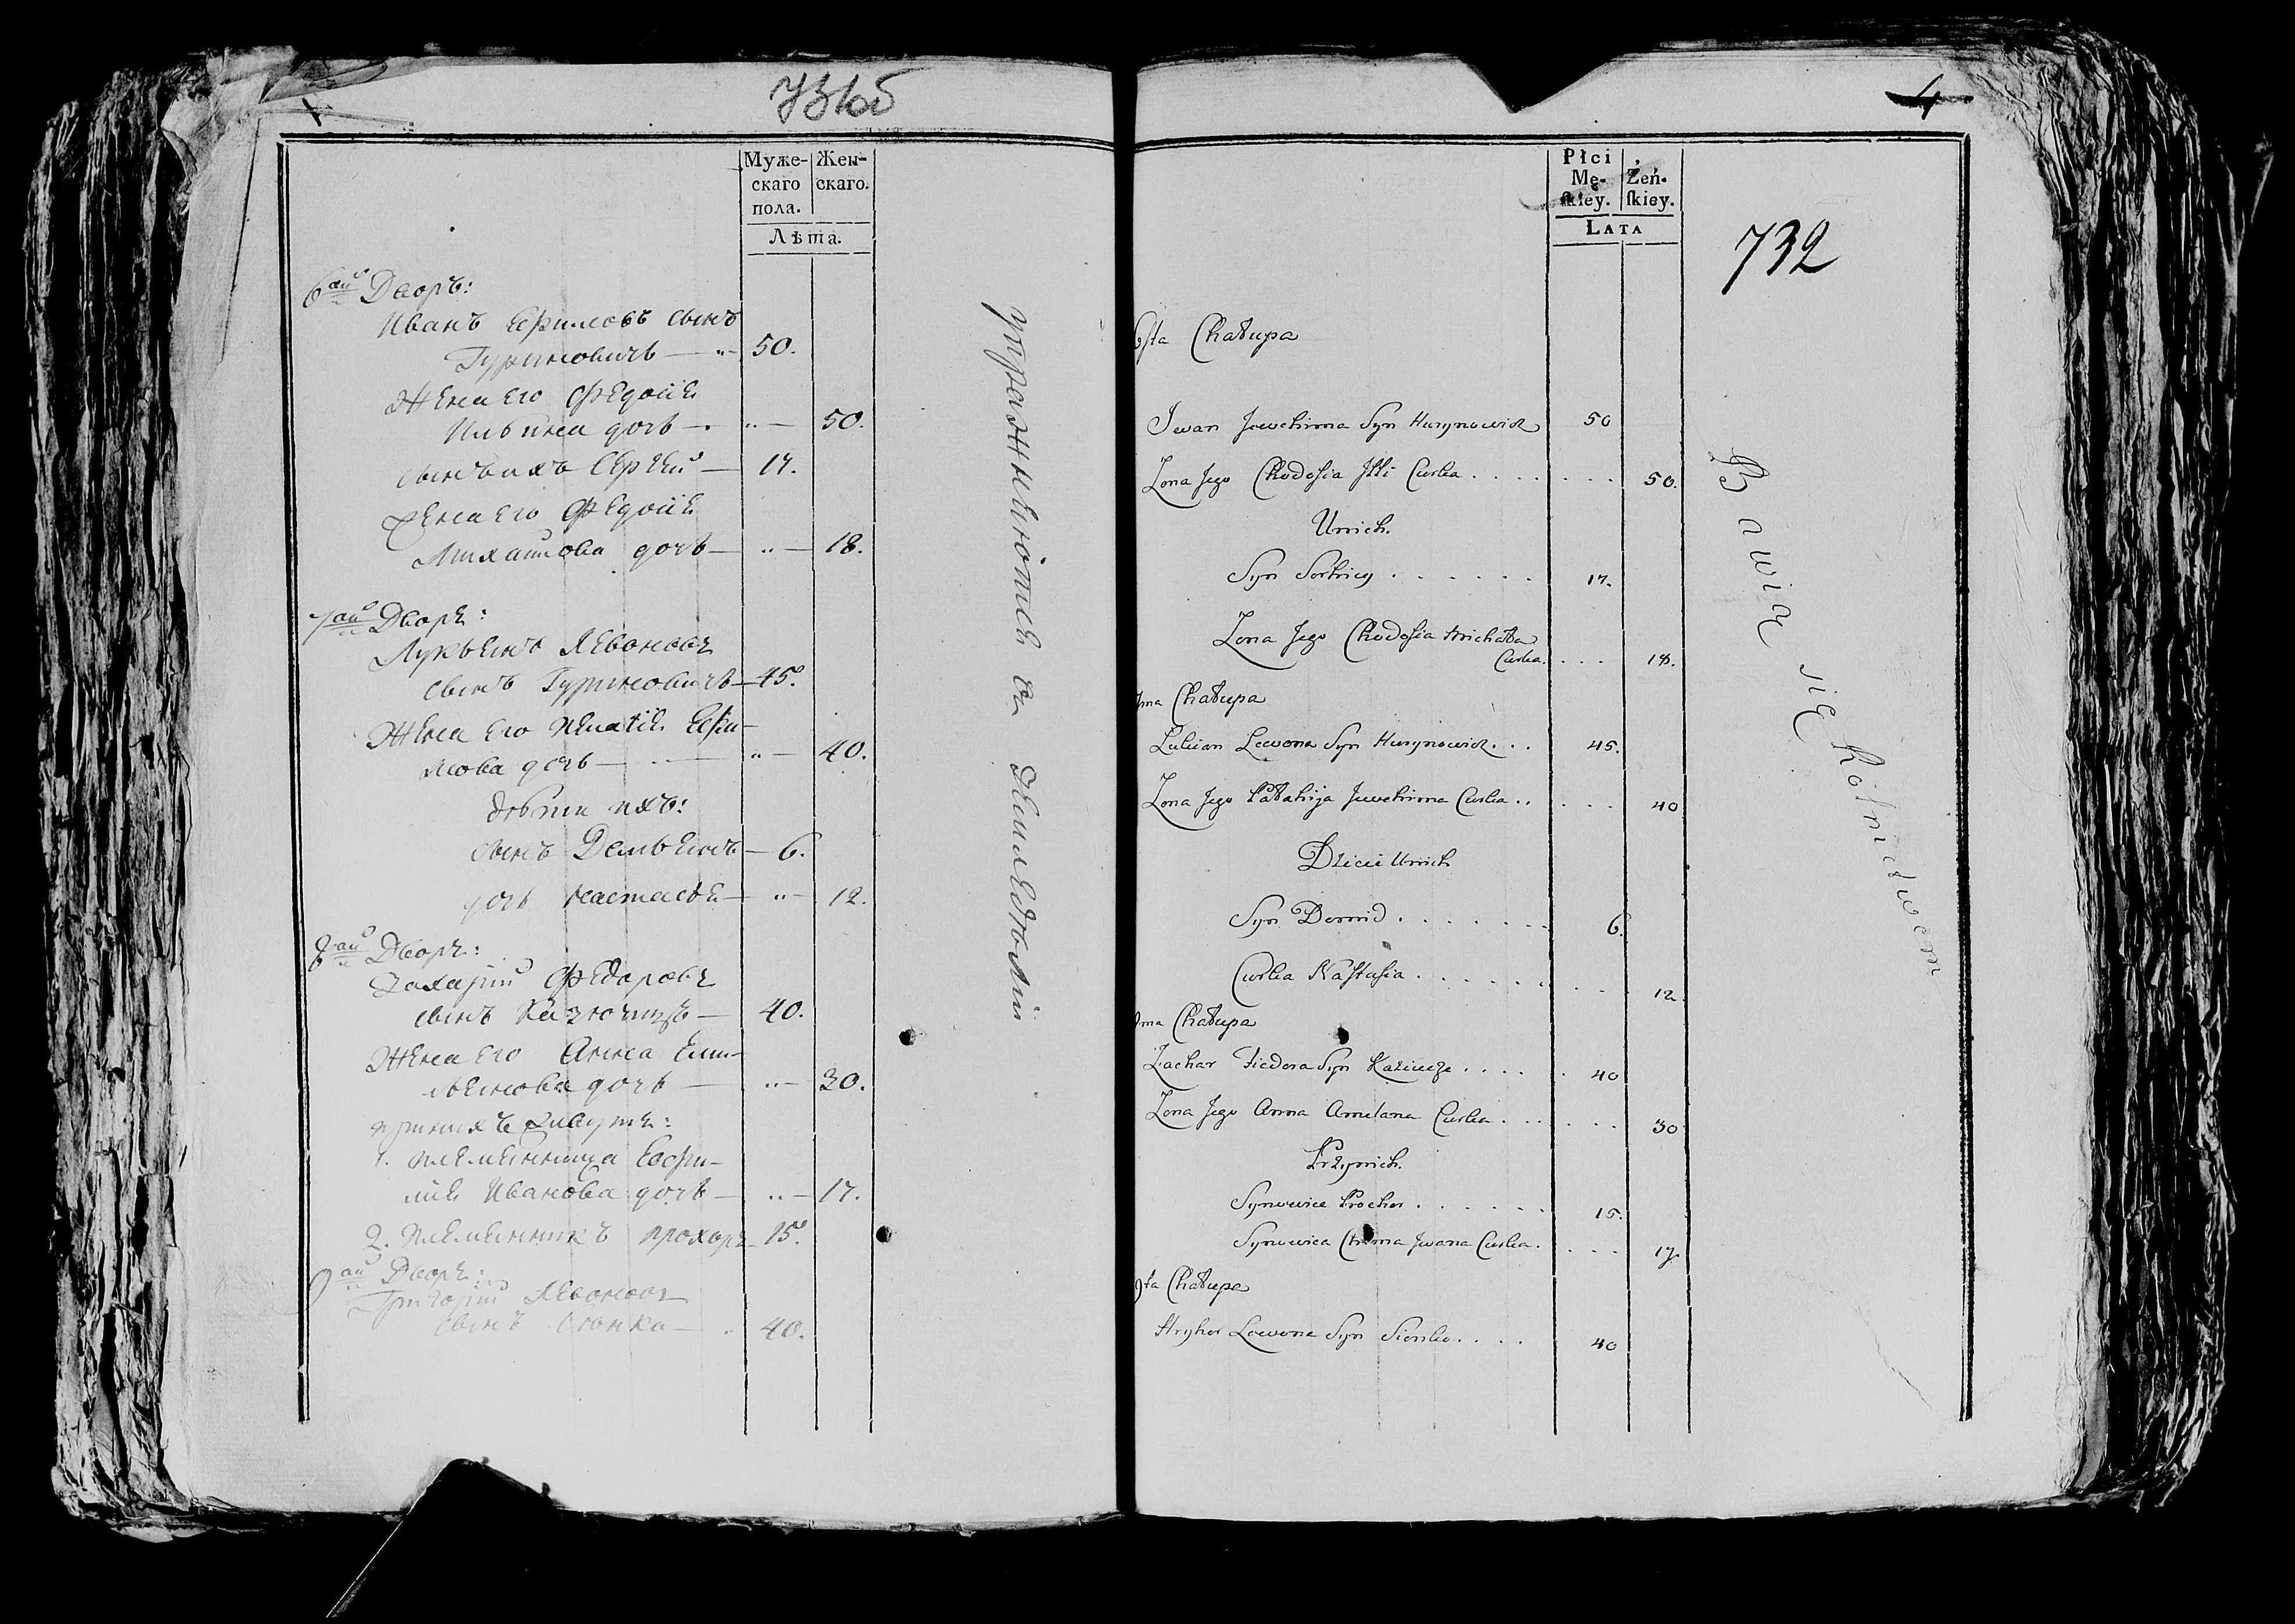 731об
Муже-
скаго
пола.
Жен-
скаго.
Лѣта.
6ай Дворъ:
Иванъ Ефимовъ сынъ
Гуриновичъ — 50.
Жена его Федосія
Ильина дочь — 50.
сынъ ихъ Сергѣй — 17.
Жена его Федосія
Михайлова дочь — 18.
7ай Дворъ:
Лукьянъ Левоновъ
сынъ Гуриновичъ — 45.
Жена его Ефи-
мова дочь — 40.
дѣти ихъ:
сынъ Демьянъ — 6.
дочь Настасья — 12.
8ай Дворъ:
Захарій Федоровъ
сынъ — 40.
Жена его Анна Еми-
льянова дочь — 30.
при нихъ живутъ:
1. племянница Евфи-
мія Иванова дочь — 17.
2. племянникъ Прохоръ 15.
9ай Дворъ:
Григорій Левоновъ
сынъ Сенька — 40.
упражняются въ земледѣліи
4
Płci
Mę-
skiey.
Żeń-
skiey.
LATA
732
6sta Chałupa
Iwan Jowchima Syn Hurynowicz 50
Zona Jego Chodosia Illi Curka . . . . . . . 50.
Unich.
Syn Serhiey . . . . . . 17.
Zona Jego Chodosia Michała
Curka. . . . 18.
7ma Chałupa
Lukian Lewona Syn Hurynowicz . . . 45.
Zona Jego Pałahija Jowchima Curka . . . . . 40
Dzieci Unich
Syn Demid . . . . . . . 6.
Curka Nastasia . . . . . . . . 12
8ma Chałupa
Zachar Fiedora Syn Kaziucze . . . . . 40
Zona Jego Anna Amelana Curka . . . . . . 30
Przynich.
Synowiec Prochor . . . . . . 15.
Synowica Chima Jwana Curka . . . . 17
9ta Chałupa
Hryhor Lewona Syn Sienko . . . . 40
Bawią się Rolnictwem